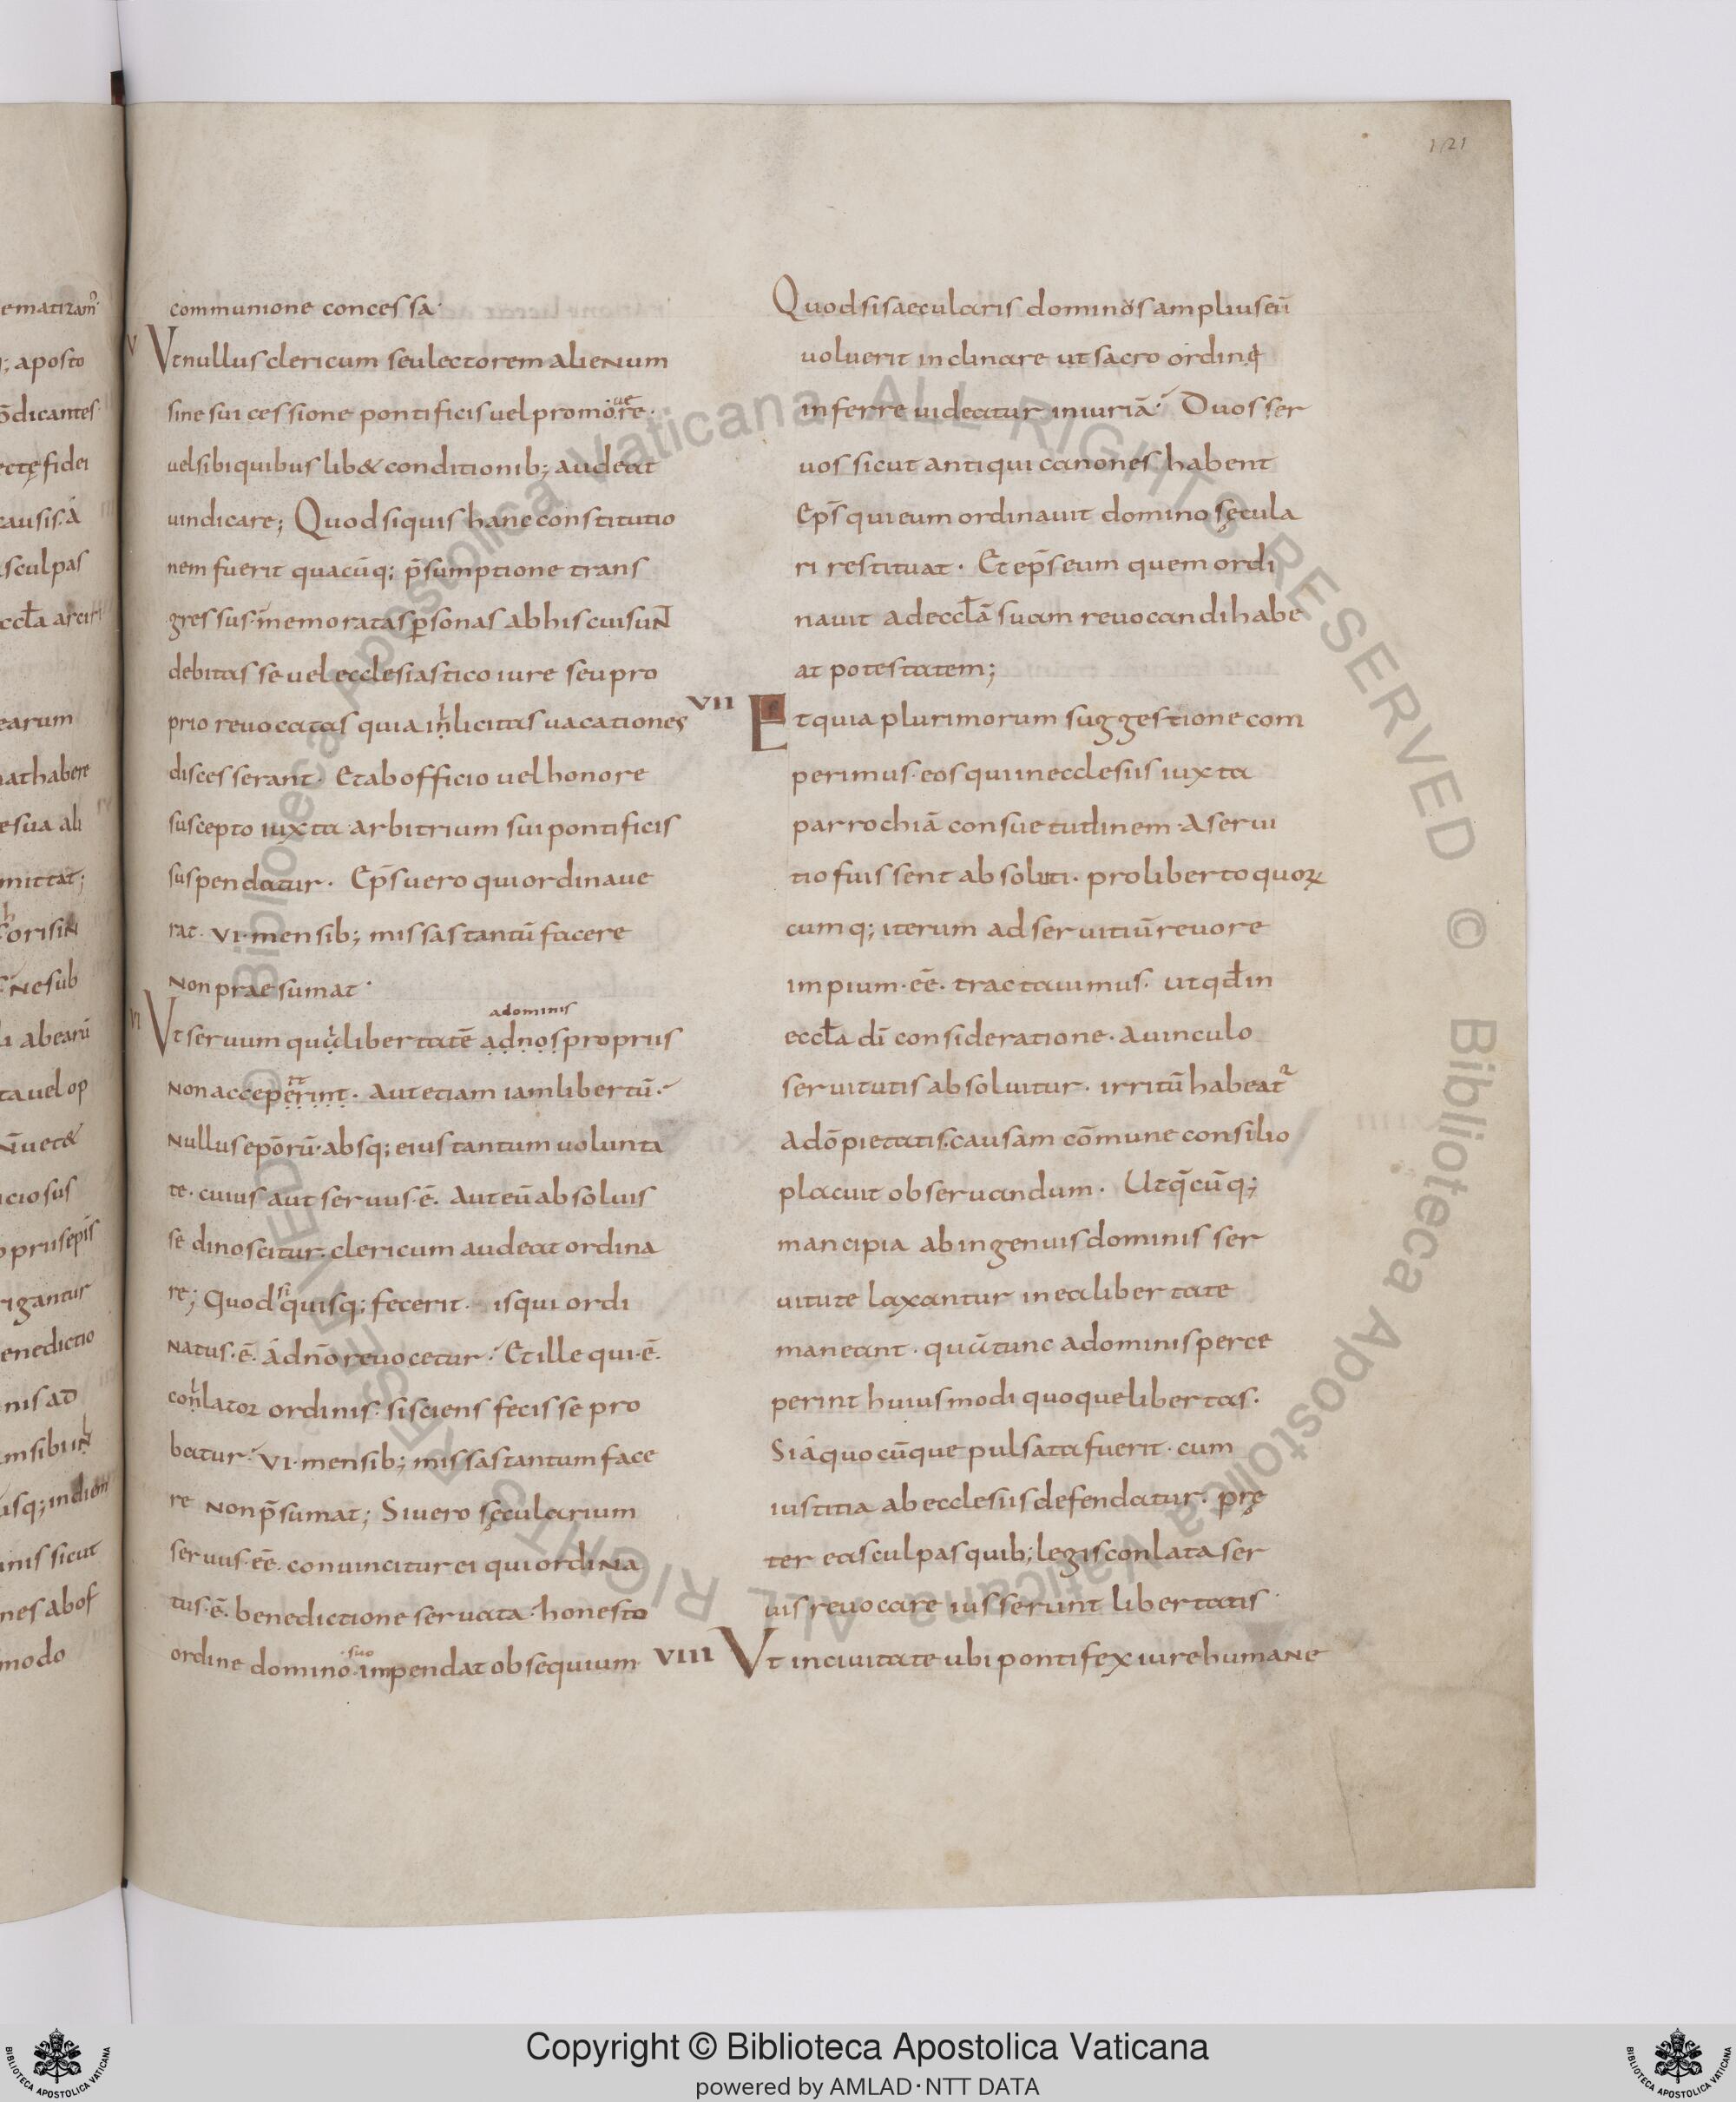 121
communione concessa·
V Vt nullus clericum seu lectorem alienum
sine sui cessione pontificis uel promouere·
uel sibi quibus lib& conditionib; audeat
uindicare; Quod si quis hanc constitutio
nem fuerit quacūq; p̄sumptione trans
gressus· memoratas ꝑsonas ab his cui sunt
debitas se uel ecclesiastico iure seu pro
prio reuocatas quia inlicitas uacationes
discesserant· Et ab officio uel honore
suscepto iuxta arbitrium sui pontificis
suspendatur· Ep̄s uero qui ordinaue
rat· VI· mensib; missas tantū facere
non praesumat·
a dominis
VI Vt seruum qui libertatē a dnos propriis
rit
non acceperint· aut etiam iam libertū·
nullus epōrū· absq; eius tantum uolunta
te· cuius aut seruus·ē· aut eū absoluis
se dinoscitur· clericum audeat ordina
re; Quod si quisq; fecerit· is qui ordi
natus·ē· á dn̄o reuocetur· Et ille qui·ē·
conlator ordinis· si sciens fecisse pro
batur· VI· mensib; missas tantum face
re non p̄sumat; Si uero sęcularium
seruus·eē· conuincitur ei qui ordina
tus·ē· benedictione seruata· honesto
suo
ordine domino· impendat obsequium
Quod si saecularis dominos amplius eū
uoluerit inclinare ut sacro ordinę
inferre uideatur iniuriā· Duos ser
uos sicut antiqui canones habent
Ep̄s qui eum ordinauit domino sęcula
ri restituat· Et ep̄s eum quem ordi
nauit ad eccƚā suam reuocandi habe
at potestatem;
VII Et quia plurimorum suggestione com
perimus· eos qui in ecclesiis iuxta
parrochiā consuetudinem· A serui
tio fuissent absoluti· pro liberto quoꝝ
cumq; iterum ad seruitiū reuore
impium·eē· tractauimus· ut qđ in
eccƚa dī consideratione· a uinculo
seruitutis absoluitur· irritū habeat²
adō pietatis· causam cōmune consilio
placuit obseruandum· Ut q̄cūq;
mancipia ab ingenuis dominis ser
uitute laxantur in ea libertate
maneant· quā tunc a dominis perce
perint huiusmodi quoque libertas·
Si á quocūque pulsata fuerit· cum
iustitia ab ecclesiis defendatur· prę
ter eas culpas quib; legis conlata ser
uis reuocare iusserunt libertatis·
VIII Vt in ciuitate ubi pontifex iure humane
Copyright © Biblioteca Apostolica Vaticana
powered by AMLAD·NTT DATA